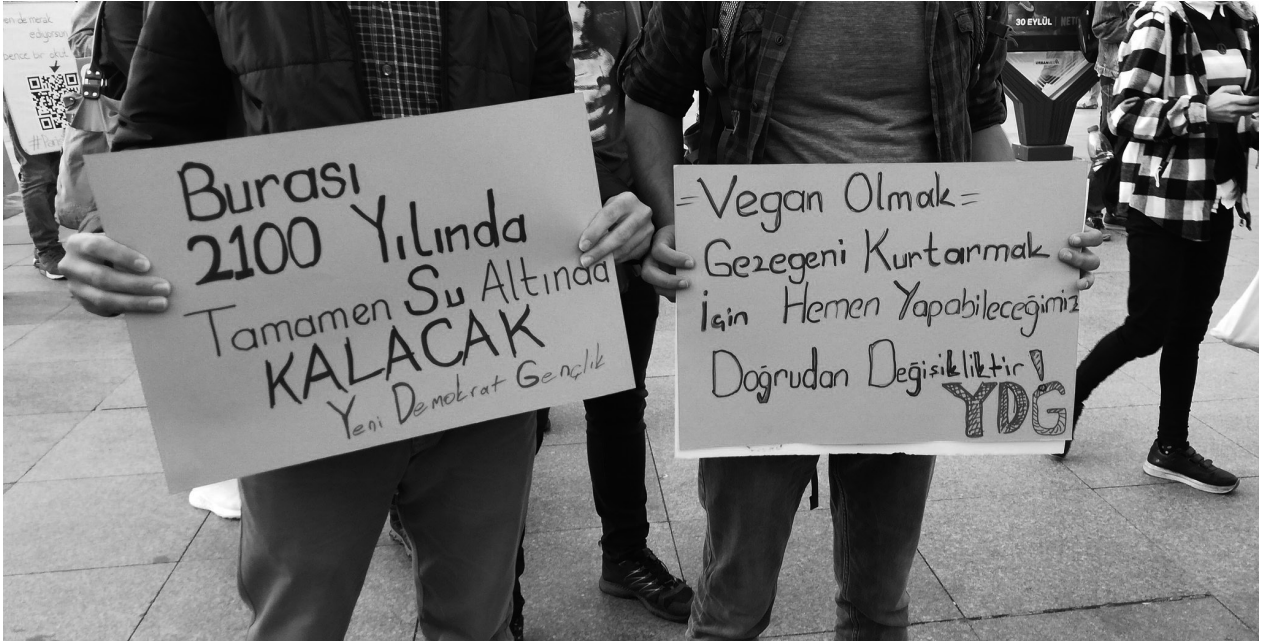 en de merak
ediyorsan
bence bir okut
Burası
2100 Yılında
Tamamen Su Altında
KALACAK
Yeni Demokrat Gençlik
=Vegan Olmak=
Gezegeni Kurtarmak
İçin Hemen Yapabileceğimiz
Doğrudan Değişikliktir!
YDG
30 EYLÜL